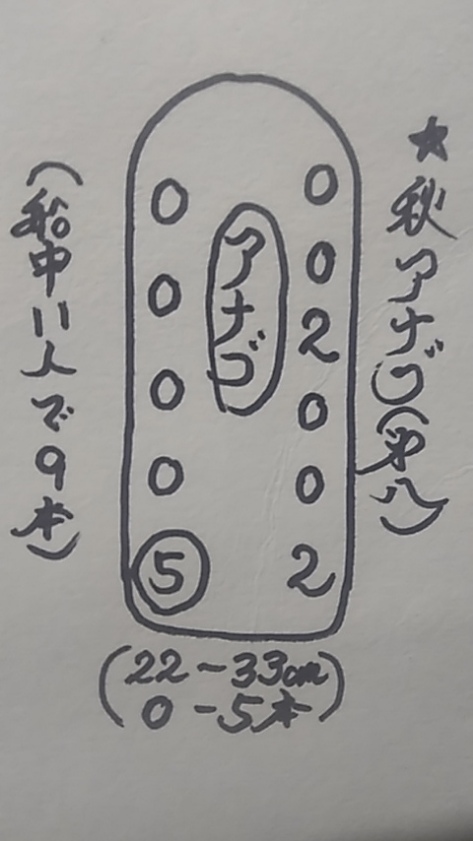 ★秋アナゴ(第八)
0
0
2
0
0
2
アナゴ
0
0
0
0
5
(船中11人で9本)
(22-33cm
0-5本)